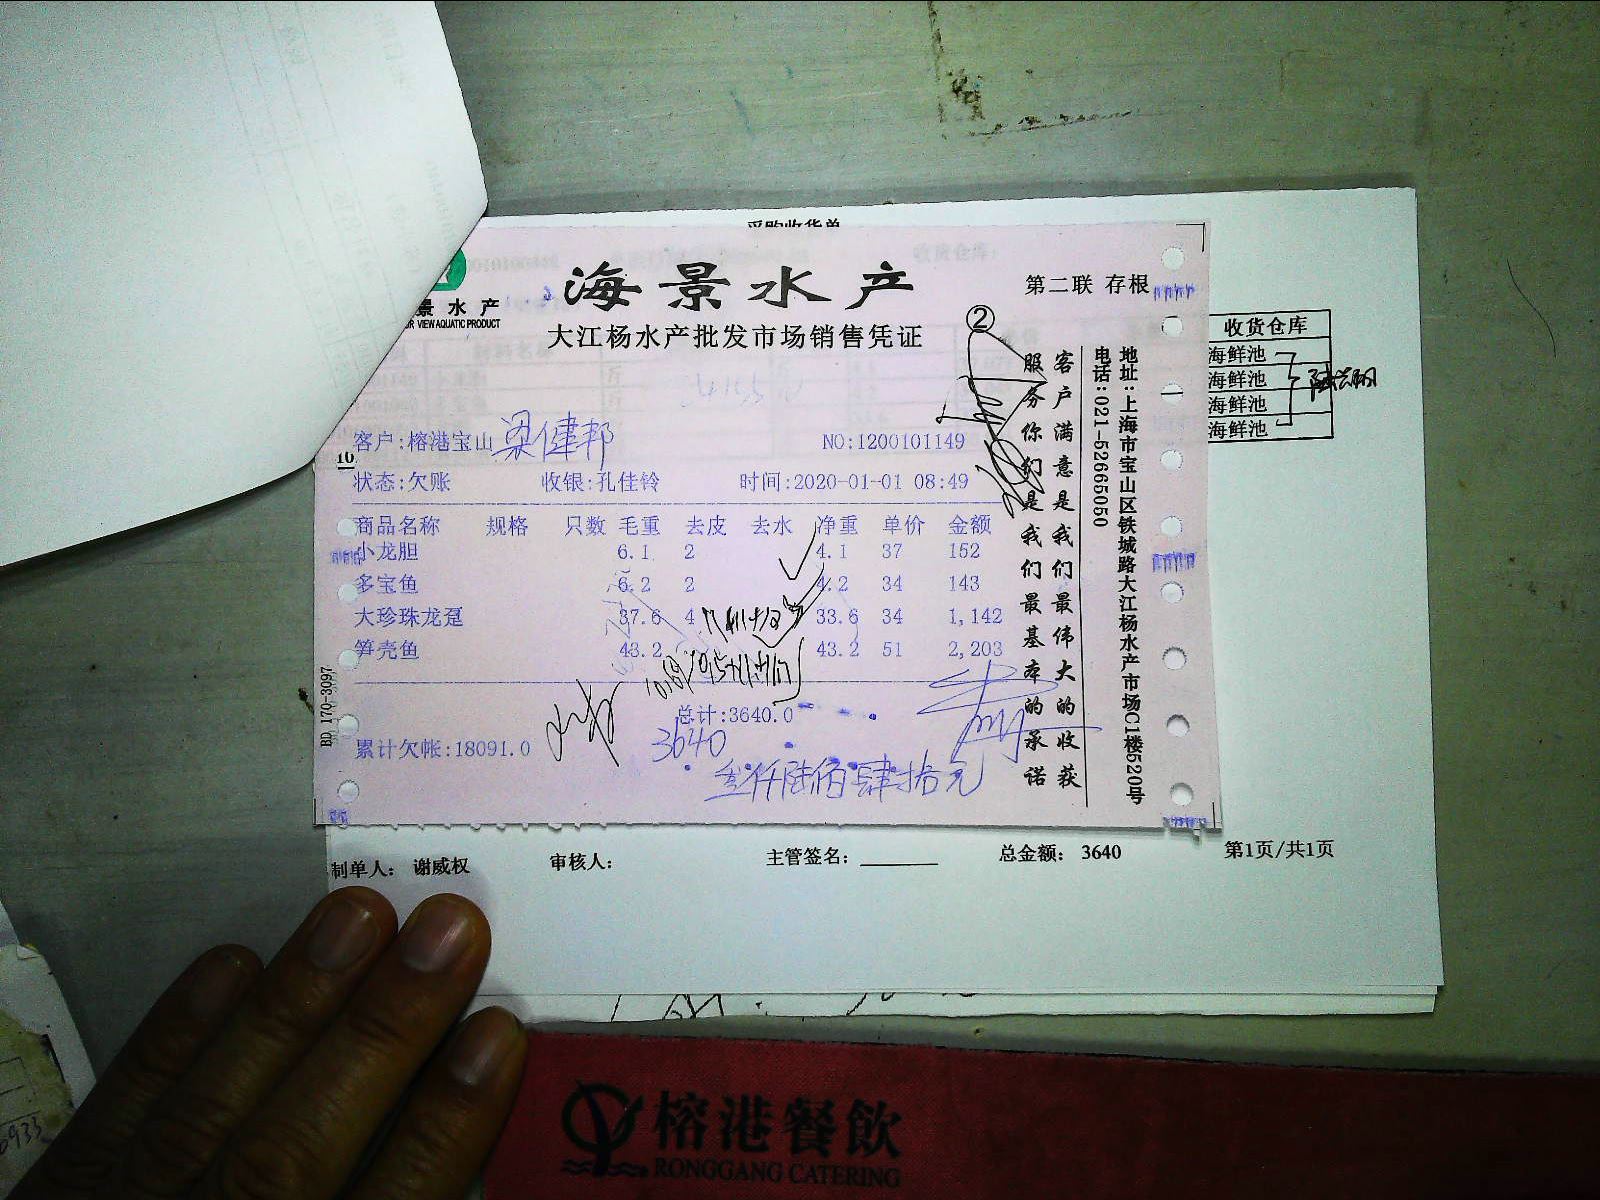 采购收货单
海景水产
第二联 存根
景水产
VIEW AQUATIC PRODUCT
大江杨水产批发市场销售凭证
②
收货仓库
海鲜池
海鲜池
海鲜池
海鲜池
客户:榕港宝山 梁健邦 NO:1200101149
10
状态:欠账 收银:孔佳铃 时间:2020-01-01 08:49
商品名称 规格 只数 毛重 去皮 去水 净重 单价 金额
小龙胆 6.1 2 4.1 37 152
多宝鱼 6.2 2 4.2 34 143
大珍珠龙趸 37.6 4 33.6 34 1,142
笋壳鱼 43.2 43.2 51 2,203
总计:3640.0
累计欠帐:18091.0
3640
叁仟陆佰肆拾元
客户满意是我们最伟大的收获
服务你们是我们最基本的承诺
地址:上海市宝山区铁城路大江杨水产市场C1楼520号
电话:021-52665050
BD 170-3097
制单人: 谢威权 审核人: 主管签名: 总金额: 3640 第1页/共1页
6933
榕港餐飲
RONGGANG CATERING